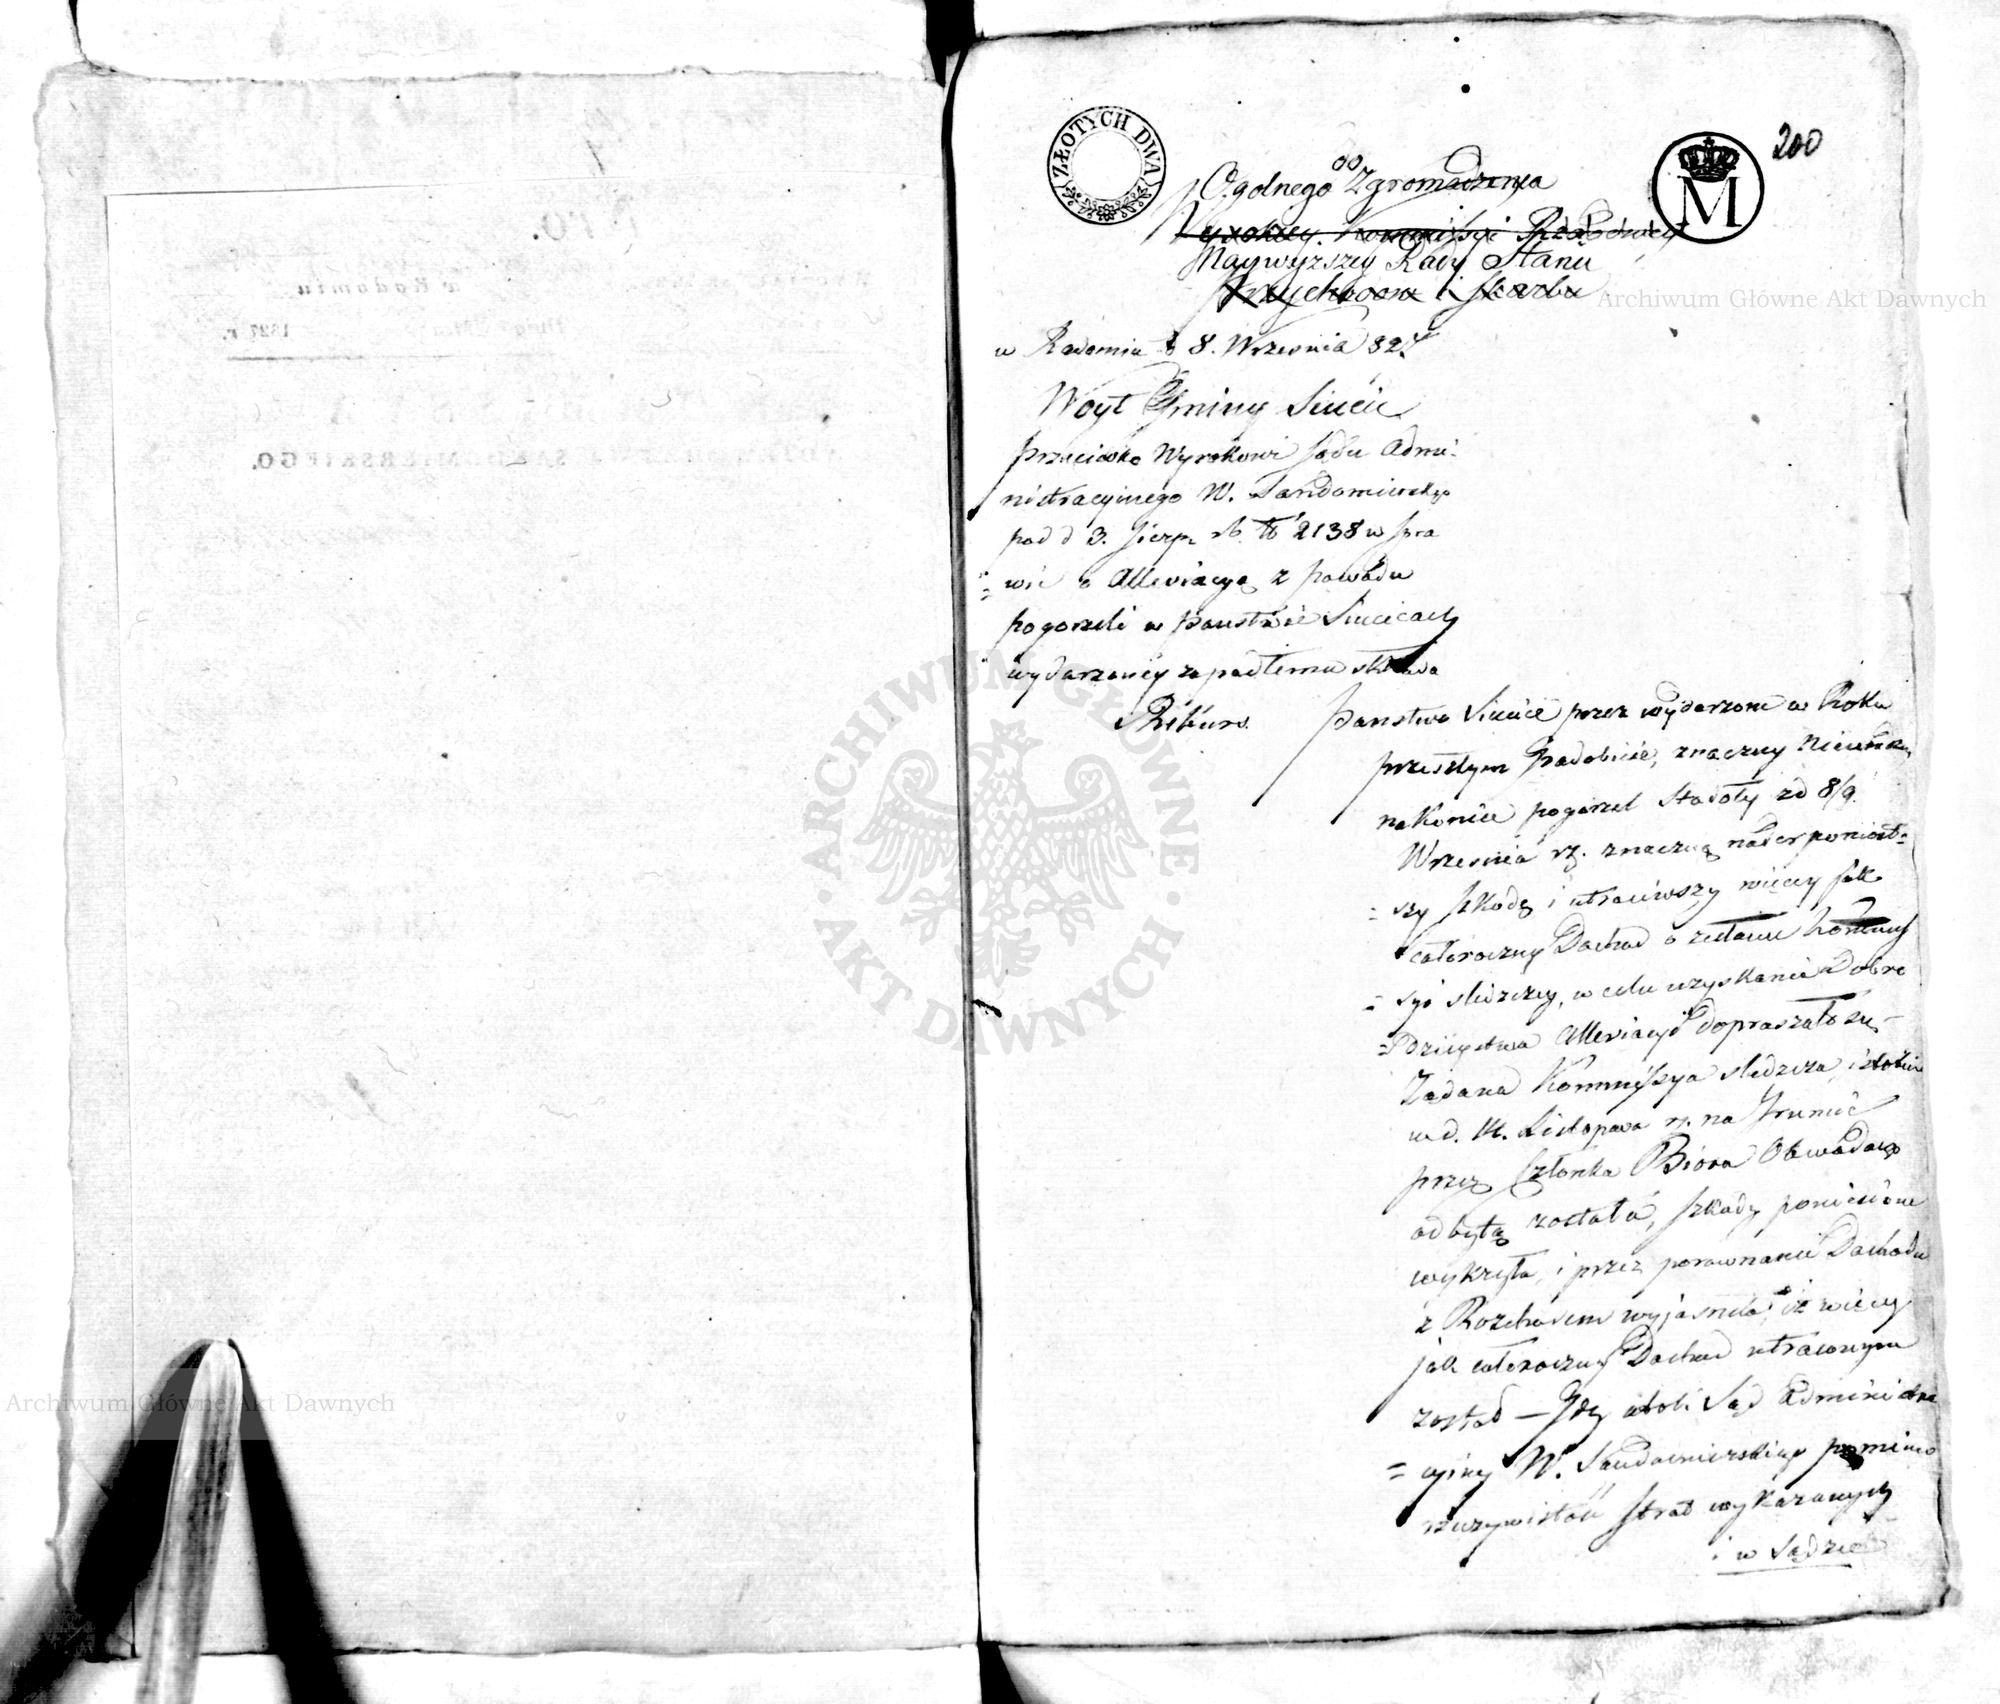 200
ZŁOTYCH DWA
M
do
Ogolnego Zgromadzenia
Wysokiey Kommissyi Rządowey
Naywyzszey Rady Stanu
Przychodow i Skarbu
w Radomiu d 8. Wrzesnia 827
Woyt Gminy Siecic
przeciwko Wyrokowi Sądu Admi-
nistracyinego W. Sandomierskiego
pod d 3. Sierp. rb. N 2138 w spra
= wie o Alleviacyą z powodu
pogorzeli w państwie
wydarzoney zapadłemu składa
Rekurs.
Panstwo przez wydarzone w Roku
przeszłym Gradobicie, znaczny
nakoniec pogorzel Stodoły zd 8/9
Wrzesnia rz. znaczną nader poniosł-
= szy szkodę i utraciwszy więcey jak
całoroczny Dochod o zesłanie Kommis
= syi sledczey, w celu uzyskania Dobro
= dzieystwa Alleviacyi dopraszało się-
Ządana Kommissya sledcza istotnie
w d. 14. Listopada rz. na Gruncie
przez Członka Biora Obwodowego
odbytą została, szkody poniesione
wykryła, i przez porownanie Dochodu
z Rozchodem wyjasniła, iż więcey
jak całoroczny Dochod utraconym
został — Gdy atoli Sąd Administra
= cyiny W. Sandomierskiego pomimo
rzeczywistości strat wykazanych
i w Sądzie
ARCHIWUM GŁÓWNE · AKT DAWNYCH ·
Archiwum Główne Akt Dawnych
Archiwum Główne Akt Dawnych